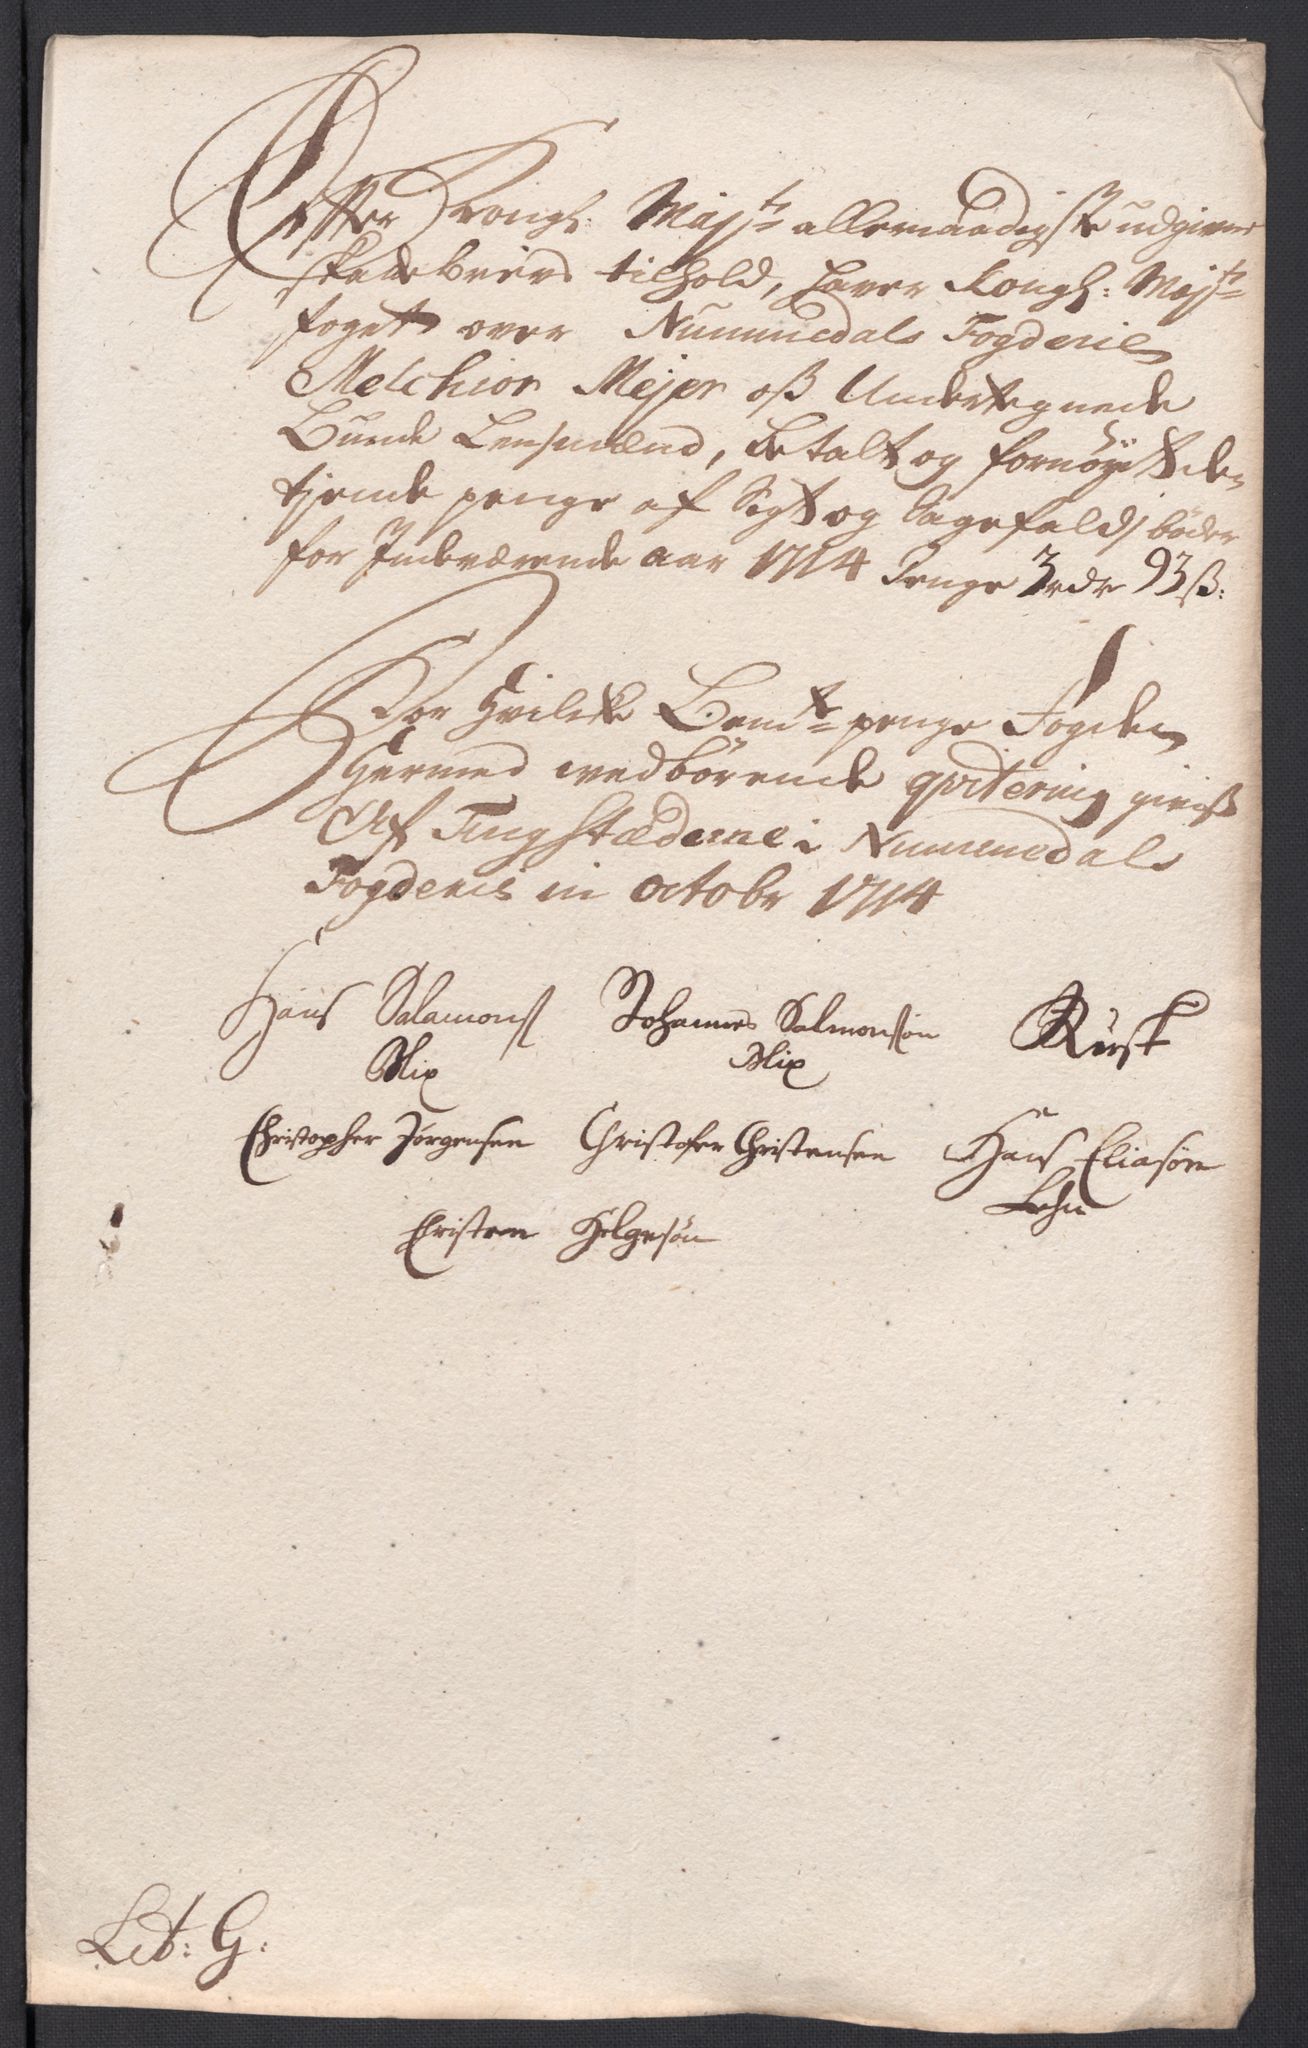 Effter Kongl: Mayts allernaadigste udgivne
skattebrevs tilhold, haver Kongl: Mayts
foget over Nummedals Fogderie
Melchior Mejer oß Undertegnede
Bunde Lensmænd, betalt og fornøyet den
tjende penge af Sigt og Sagefalds bøder
for Indeværende aar 1714 Penge 3 rdr 93 ß:
For hvilcke Bemte penge Fogden
hermed vedbørende qvitering giviß
Af Tingstæderne i Nummedals
Fogderie in octobr 1714
Hans Salamonß Johannes Salmonsøn Rusk
Mix Mix
Christopher Jørgensen Christofer Christensen Hans Eliasøn
Lehn
Christen Helgesøn
Lit: G: